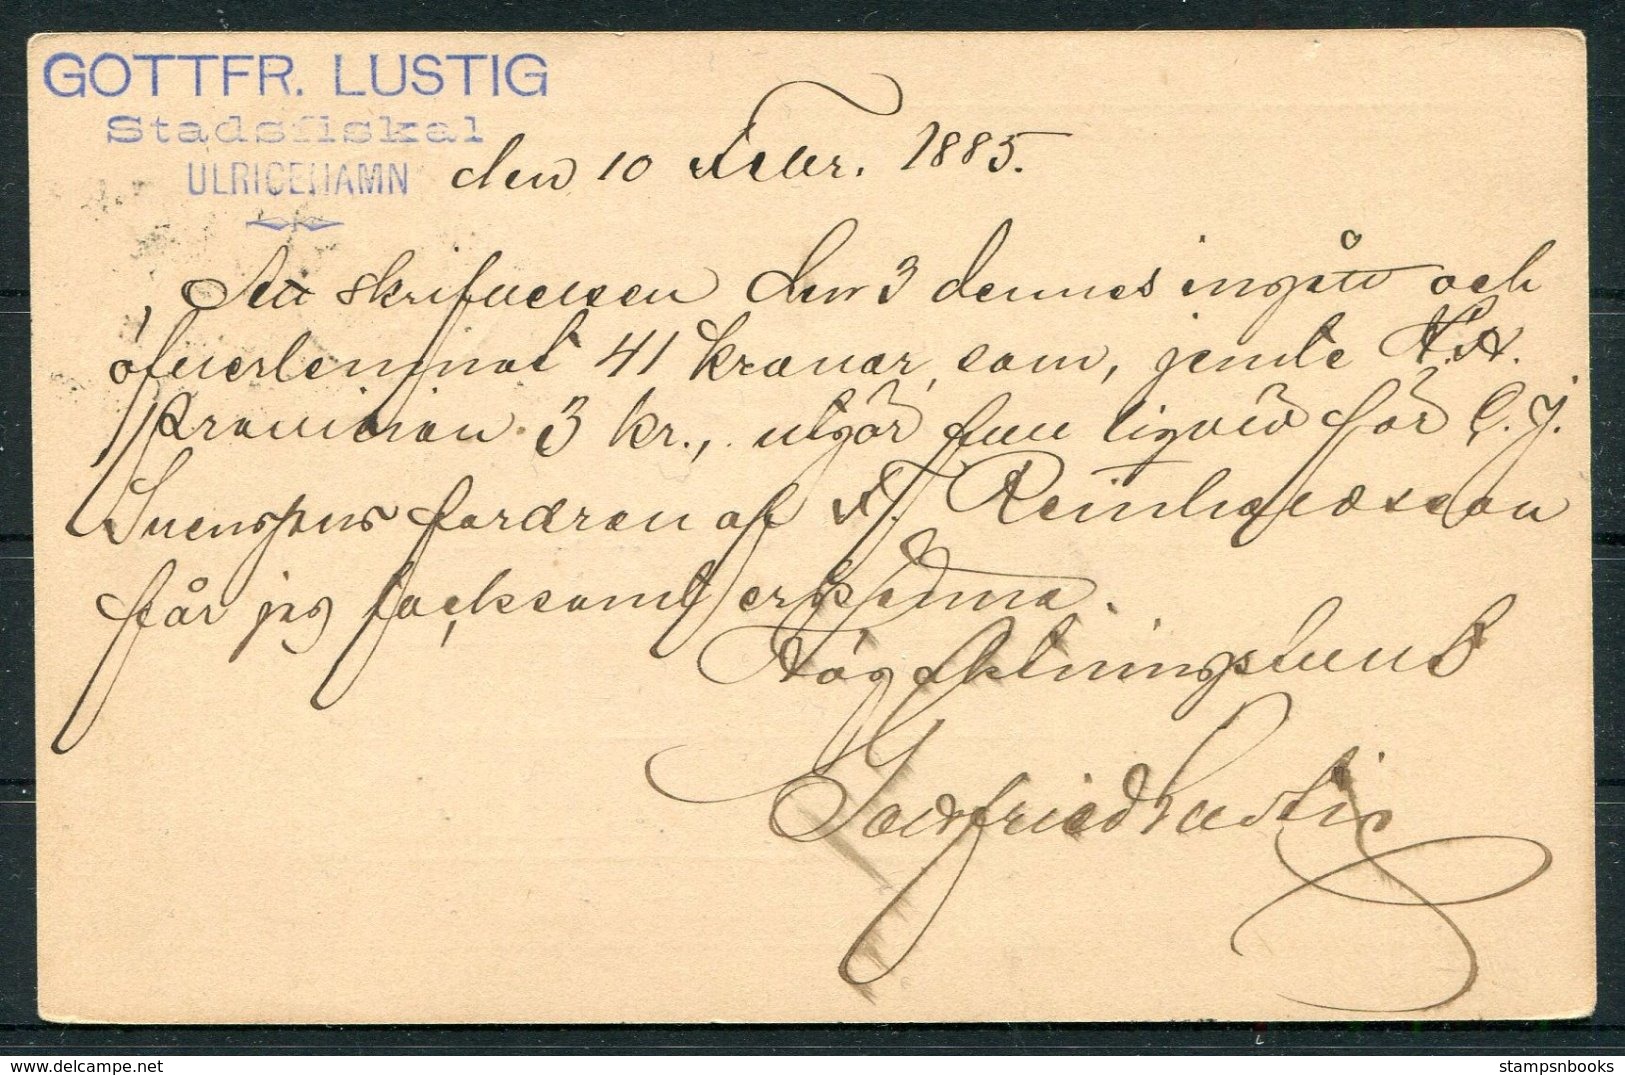 GOTTFR. LUSTIG
Stadsfiskal
ULRICEHAMN
den 10 Febr. 1885.
Att skrifvelsen den 3 dennes ingått och
öfverlemnat 41 kronor, som, jemte
Provision 3 kr., utgör full liqvid för C. J.
Svenspns fordran af F. Reinholdsson
får jag tacksamt erkänna.
Högaktningsfullt
Gottfried Lustig
stampsnbooks